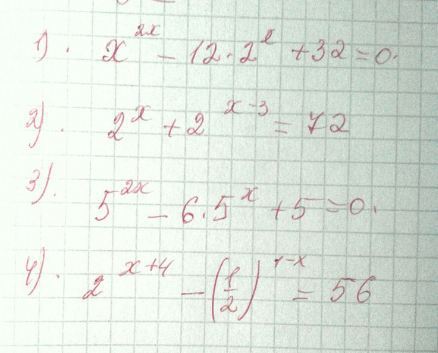 1). x^{2x} - 12·2^{x} + 32 = 0.
2). 2^{x} + 2^{x-3} = 72
3). 5^{2x} - 6·5^{x} + 5 = 0.
4). 2^{x+4} - (1/2)^{1-x} = 56